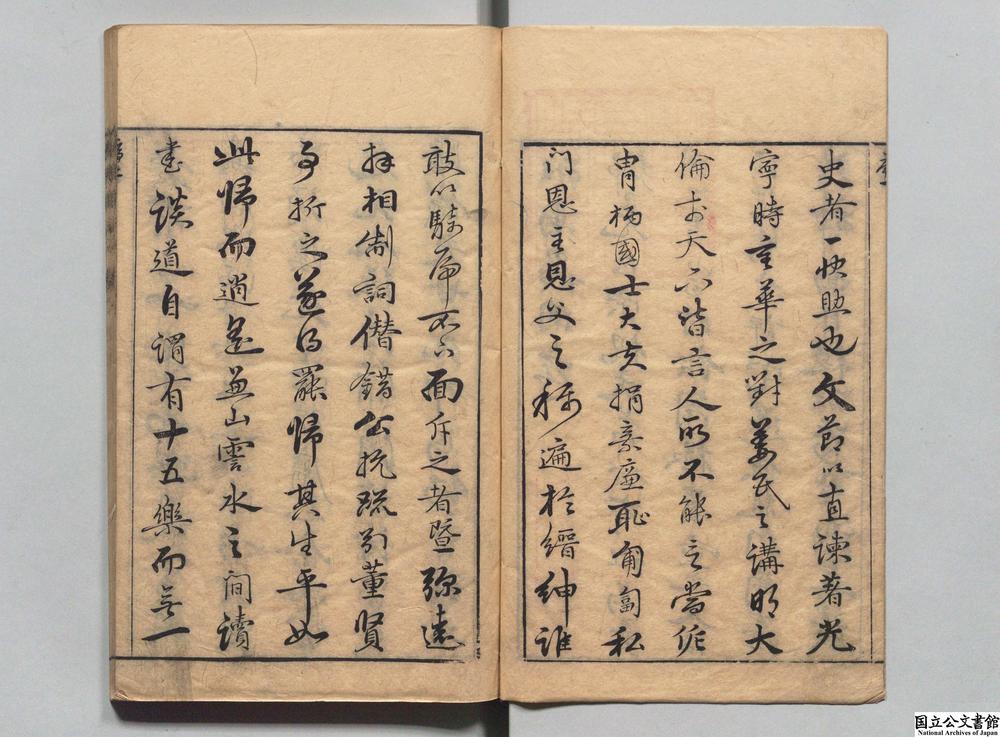 史者一快助也文節以直諫著光
寧時重華之對姜氏之講明大
倫於天下皆言人所不能言當侂
胄柄國士大夫捐棄廉恥匍匐私
門恩主恩父之稱遍於縉紳誰
敢以騎虎不下面斥之者暨彌遠
拜相制詞僭錯公抗疏引董賢
事折之遂得罷歸其生平如
此歸而逍遙兼山雲水之間讀
書談道自謂有十五樂而無一
国立公文書館
National Archives of Japan